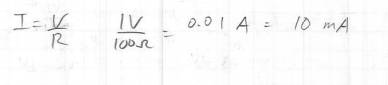 I = V/R   1V/100Ω = 0.01 A = 10 mA